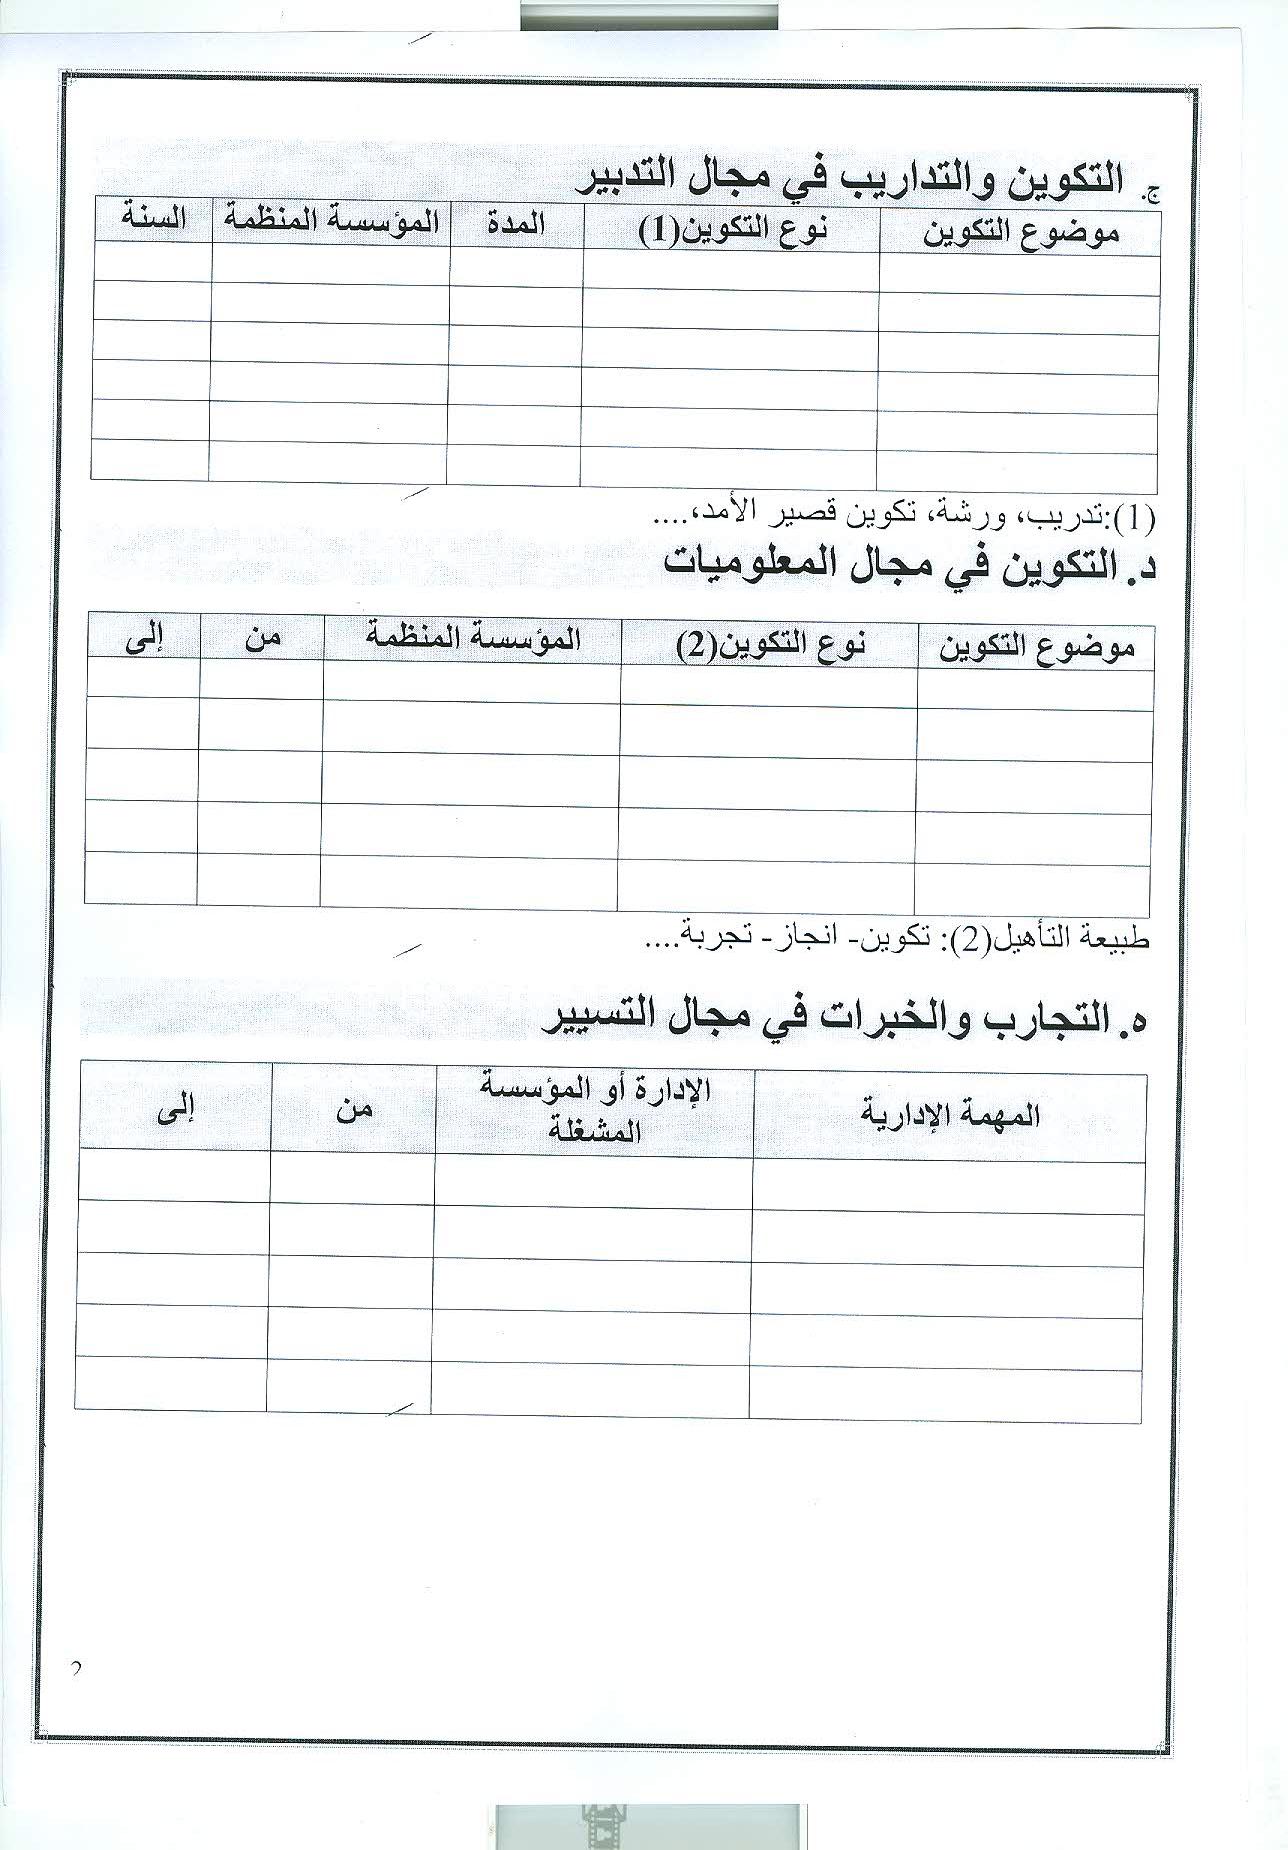 ج. التكوين والتداريب في مجال التدبير
موضوع التكوين نوع التكوين(1) المدة المؤسسة المنظمة السنة
(1):تدريب، ورشة، تكوين قصير الأمد،....
د. التكوين في مجال المعلوميات
موضوع التكوين نوع التكوين(2) المؤسسة المنظمة من إلى
طبيعة التأهيل(2): تكوين- انجاز- تجربة....
ه. التجارب والخبرات في مجال التسيير
المهمة الإدارية الإدارة أو المؤسسة المشغلة من إلى
2